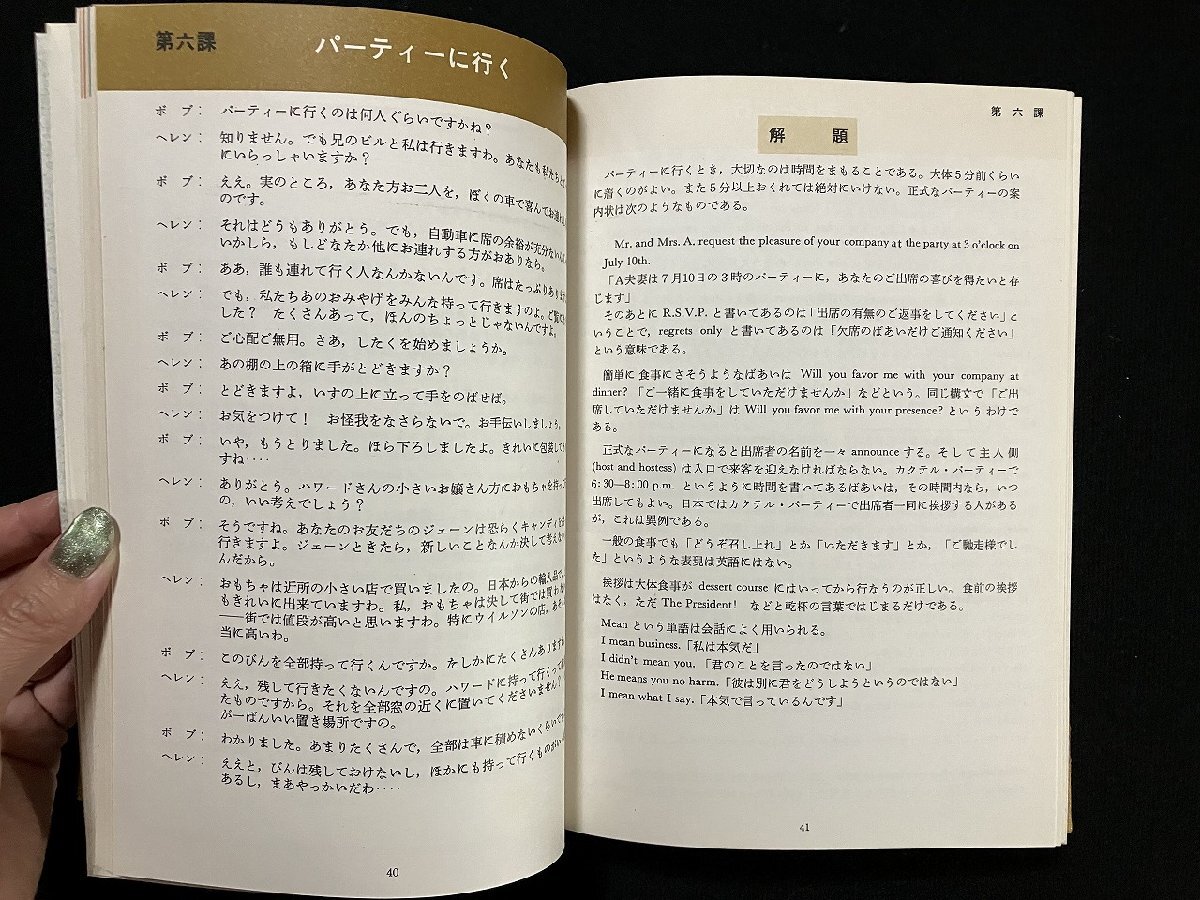 第六課
パーティーに行く
ボブ： パーティーに行くのは何人ぐらいですかね？
ヘレン： 知りません。でも兄のビルと私は行きますわ。あなたも私たちと
にいらっしゃいますか？
ボブ： ええ。実のところ，あなた方お二人を，ぼくの車で喜んでお連れ
のです。
ヘレン： それはどうもありがとう。でも，自動車に席の余裕が充分ない
いかしら，もしどなたか他にお連れする方がおありなら。
ボブ： ああ，誰も連れて行く人なんかないんです。席はたっぷりあり
ヘレン： でも，私たちあのおみやげをみんな持って行きますのよ。ご覧
した？ たくさんあって，ほんのちょっとじゃないんですよ。
ボブ： ご心配ご無用。さあ，したくを始めましょうか。
ヘレン： あの棚の上の箱に手がとどきますか？
ボブ： とどきますよ，いすの上に立って手をのばせば，
ヘレン： お気をつけて！ お怪我をなさらないで。お手伝いしましょう。
ボブ： いや，もうとりました。ほら下ろしましたよ。きれいに包装して
すね‥‥
ヘレン： ありがとう。ハワードさんの小さいお嬢さん方におもちゃを持っ
の，いい考えでしょう？
ボブ： そうですね。あなたのお友だちのジェーンは恐らくキャンディを
行きますよ。ジェーンときたら，新しいことなんか決して考えな
んだから。
ヘレン： おもちゃは近所の小さい店で買いましたの。日本からの輸入品で，
もきれいに出来ていますわ。私，おもちゃは決して街では買わ
――街では値段が高いと思いますわ。特にウイルソンの店，あそ
当に高いわ。
ボブ： このびんを全部持って行くんですか。たしかにたくさんありますね
ヘレン： ええ，残して行きたくないんですの。ハワードに持って行って
たものですから。それを全部窓の近くに置いてくださいません？
が一ばんいい置き場所ですの。
ボブ： わかりました。あまりたくさんで，全部は車に積めないくらいで
ヘレン： ええと，びんは残しておけないし，ほかにも持って行くものが
あるし，まあやっかいだわ‥‥
40
第六課
解題
パーティーに行くとき，大切なのは時間をまもることである。大体5分前くらい
に着くのがよい。また5分以上おくれては絶対にいけない。正式なパーティーの案
内状は次のようなものである。
Mr. and Mrs. A. request the pleasure of your company at the party at 3 o'clock on
July 10th.
「A夫妻は7月10日の3時のパーティーに，あなたのご出席の喜びを得たいと存
じます」
そのあとに R.S.V.P. と書いてあるのは「出席の有無のご返事をしてください」と
いうことで，regrets only と書いてあるのは「欠席のばあいだけご通知ください」
という意味である。
簡単に食事にさそうようなばあいは Will you favor me with your company at
dinner? 「ご一緒に食事をしていただけませんか」などという。同じ構文で「ご出
席していただけませんか」は Will you favor me with your presence? というわけで
ある。
正式なパーティーになると出席者の名前を一々 announce する。そして主人側
(host and hostess) は入口で来客を迎えなければならない。カクテル・パーティーで
6:30—8:00 p.m. というように時間を書いてあるばあいは，その時間内なら，いつ
出席してもよい。日本ではカクテル・パーティーで出席者一同に挨拶する人がある
が，これは異例である。
一般の食事でも「どうぞ召し上れ」とか「いただきます」とか，「ご馳走様でし
た」というような表現は英語にはない。
挨拶は大体食事が dessert course にはいってから行なうのが正しい。食前の挨拶
はなく，ただ The President! などと乾杯の言葉ではじまるだけである。
Mean という単語は会話によく用いられる。
I mean business.「私は本気だ」
I didn't mean you.「君のことを言ったのではない」
He means you no harm.「彼は別に君をどうしようというのではない」
I mean what I say.「本気で言っているんです」
41